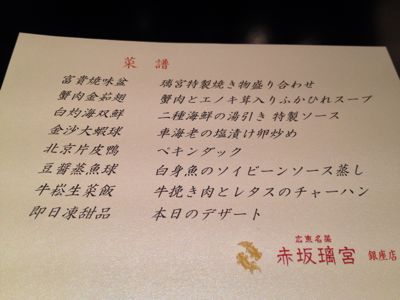 菜譜
富貴焼味盆 璃宮特製焼き物盛り合わせ
蟹肉金茹翅 蟹肉とエノキ茸入りふかひれスープ
白灼海双鮮 二種海鮮の湯引き 特製ソース
金沙大蝦球 車海老の塩漬け卵炒め
北京片皮鴨 ペキンダック
豆醬蒸魚球 白身魚のソイビーンソース蒸し
牛崧生菜飯 牛挽き肉とレタスのチャーハン
即日凍甜品 本日のデザート
広東名菜
赤坂璃宮 銀座店